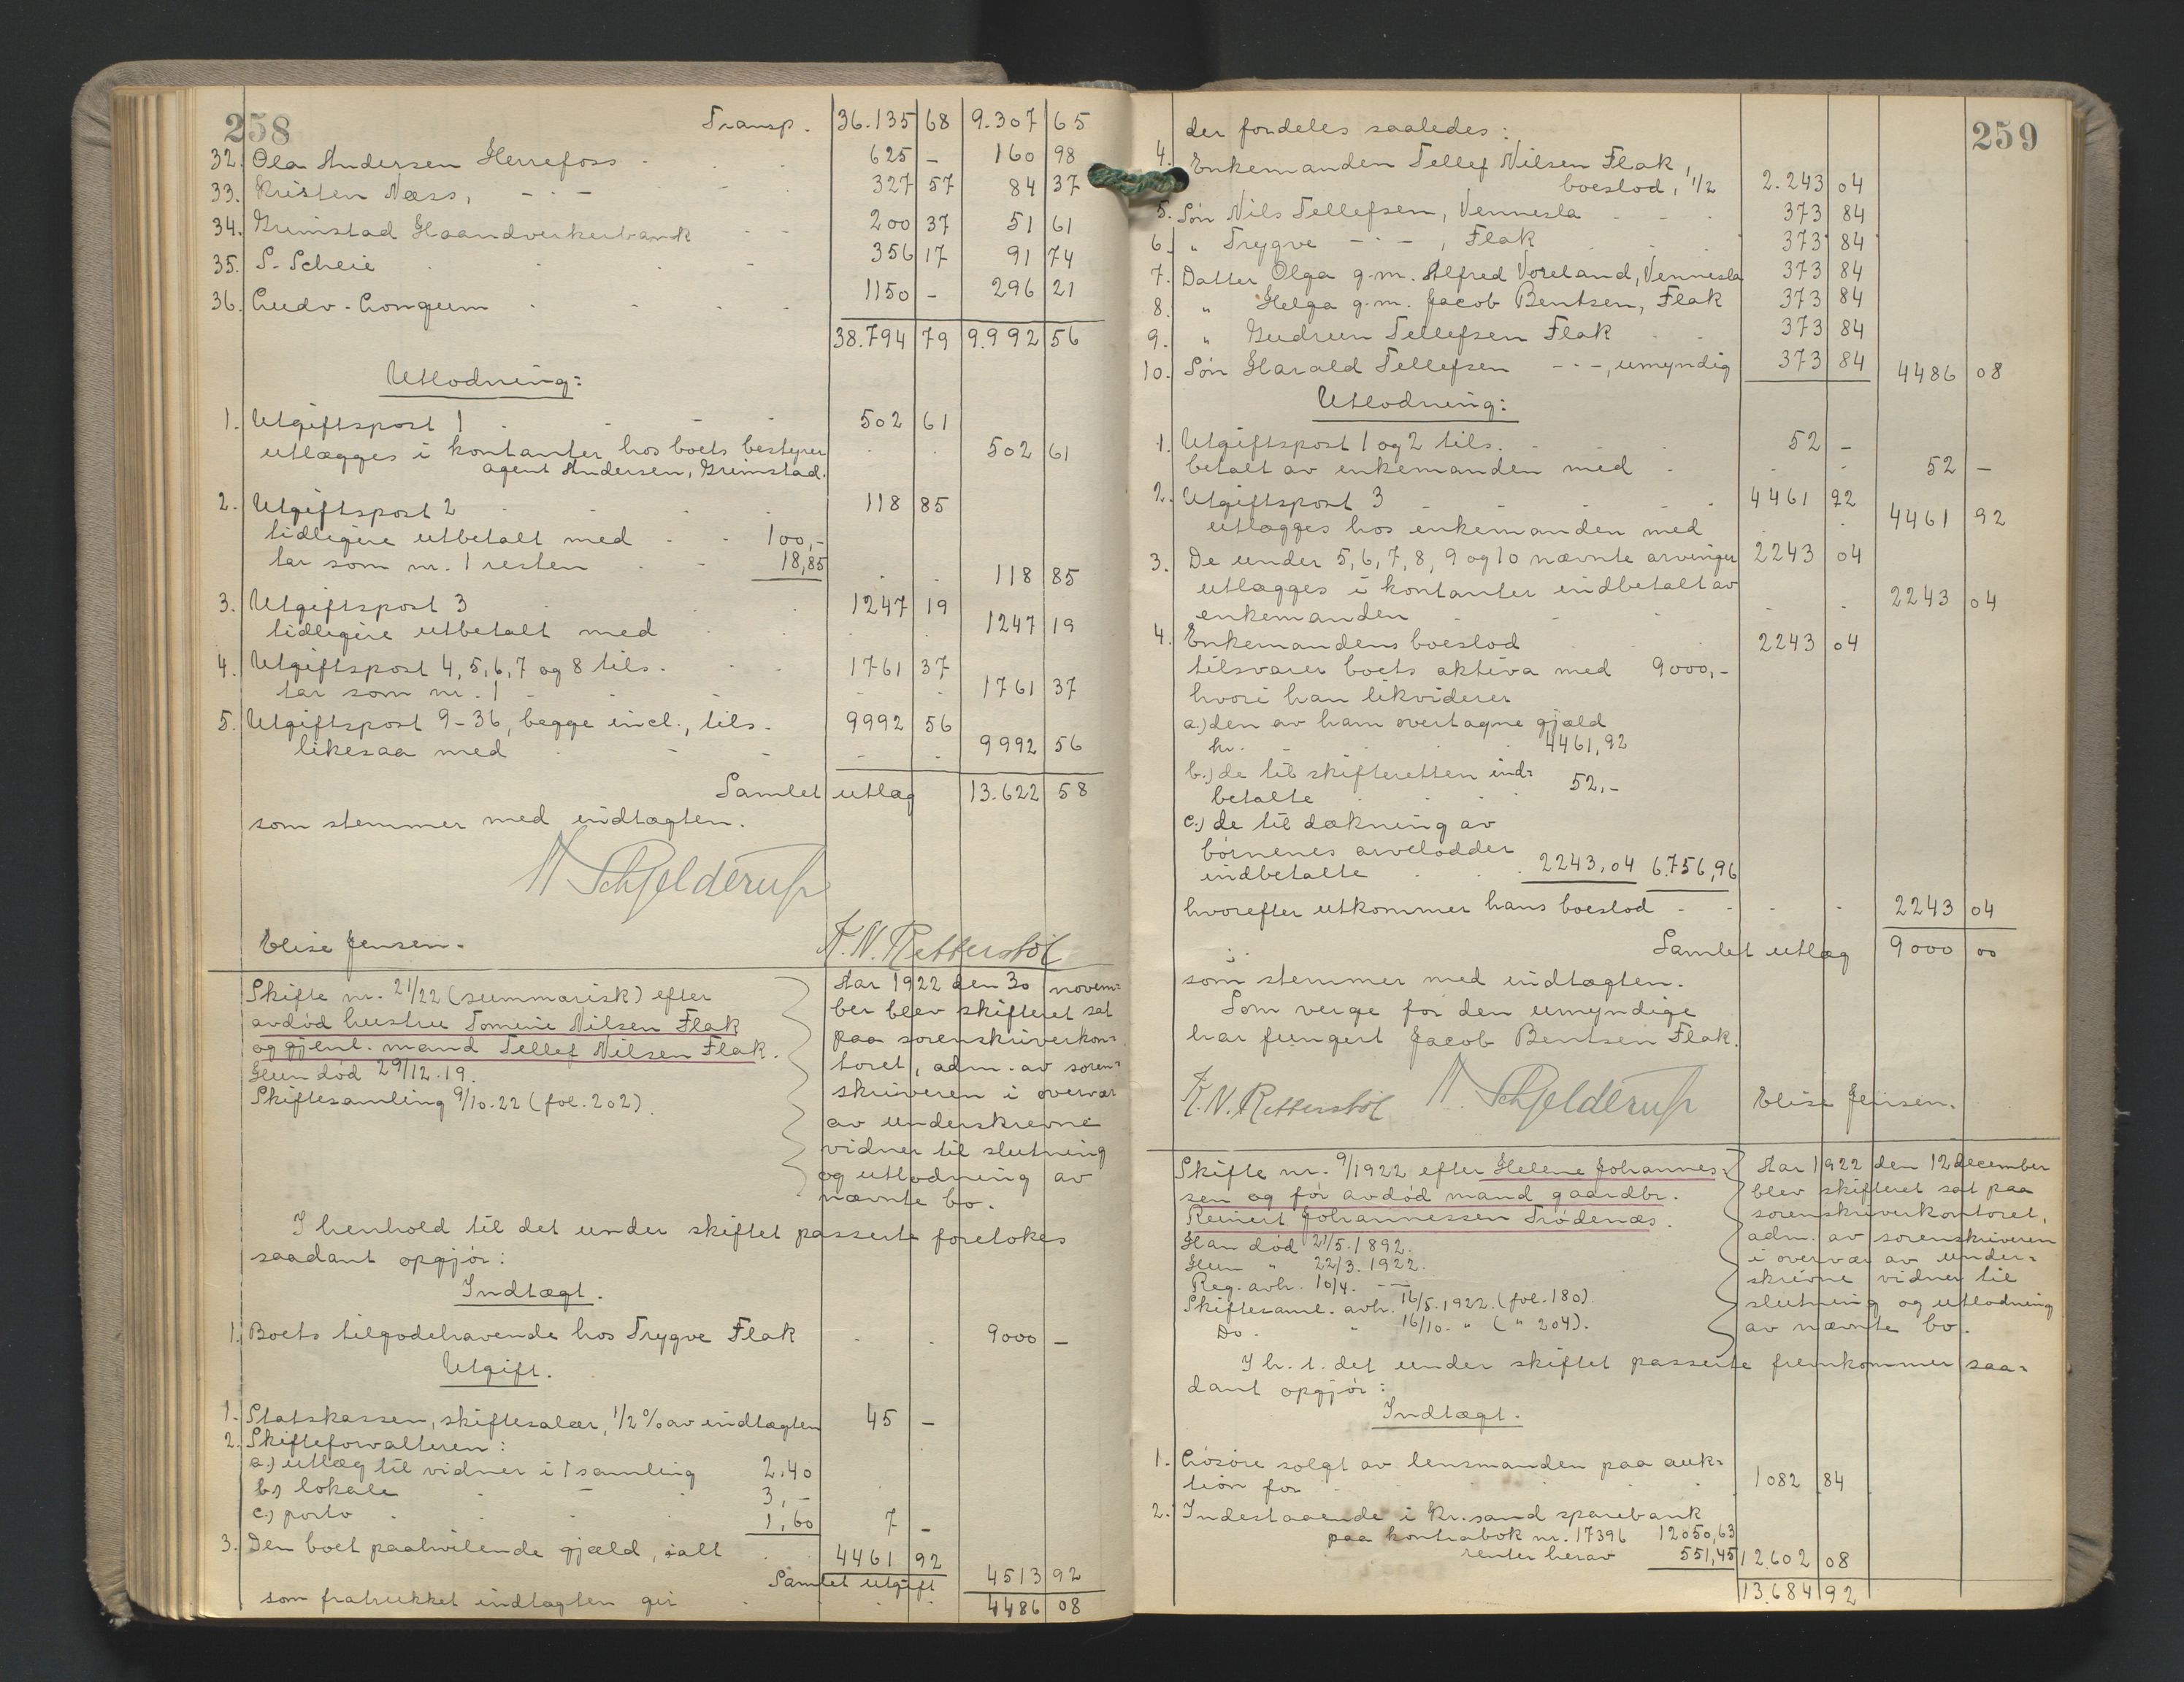 258
Transp. 36.135 68 9.307 65
32. Ola Andersen Herrefoss 625 – 160 98
33. Kristen Næss, – · – 327 57 84 37
34. Grimstad Haandverkerbank 200 37 51 61
35. S. Scheie 356 17 91 74
36. Ludv. Longum 1150 – 296 21
38.794 79 9.992 56
Utlodning:
1. Utgiftspost 1 502 61
utlægges i kontanter hos boets bestyrer 502 61
agent Andersen, Grimstad.
2. Utgiftspost 2 118 85
tidligere utbetalt med 100,–
tar som nr. 1 resten 18,85 118 85
3. Utgiftspost 3 1247 19
tidligere utbetalt med 1247 19
4. Utgiftspost 4, 5, 6, 7 og 8 tils. 1761 37
tar som nr. 1 1761 37
5. Utgiftspost 9–36, begge incl., tils. 9992 56
likesaa med 9992 56
Samlet utlæg 13.622 58
som stemmer med indtægten.
N Schjelderup
Elise Jensen. K. N. Rettersböl
Skifte nr. 21/22 (summarisk) efter
avdød hustru Tomine Nilsen Flak
og gjenl. mand Tellef Nilsen Flak.
Hun død 29/12.19.
Skiftesamling 9/10.22 (fol. 202).
Aar 1922 den 30 novem=
ber blev skifteret sat
paa sorenskriverkon=
toret, adm. av soren=
skriveren i overvær
av underskrevne
vidner til slutning
og utlodning av
nævnte bo.
I henhold til det under skiftet passerte foretokes
saadant opgjør:
Indtægt.
1. Boets tilgodehavende hos Trygve Flak 9000 –
Utgift.
1. Statskassen, skiftesalær, 1/2 % av indtægten 45 –
2. Skifteforvalteren:
a.) utlæg til vidner i 1 samling 2.40
b.) lokale 3,–
c.) porto 1,60 7 –
3. Den boet paahvilende gjæld, ialt 4461 92
Samlet utgift 4513 92
som fratrukket indtægten gir 4486 08
259
der fordeles saaledes:
4. Enkemanden Tellef Nilsen Flak,
boeslod, 1/2 2.243 04
5. Søn Nils Tellefsen, Vennesla 373 84
6. " Trygve – · – , Flak 373 84
7. Datter Olga g.m. Alfred Voreland, Vennesla 373 84
8. " Helga g.m. Jacob Bentsen, Flak 373 84
9. " Gudrun Tellefsen Flak 373 84
10. Søn Harald Tellefsen – · –, umyndig 373 84 4486 08
Utlodning:
1. Utgiftspost 1 og 2 tils. 52 –
betalt av enkemanden med 52 –
2. Utgiftspost 3 4461 92
utlægges hos enkemanden med 4461 92
3. De under 5, 6, 7, 8, 9 og 10 nævnte arvinger 2243 04
utlægges i kontanter indbetalt av
enkemanden 2243 04
4. Enkemandens boeslod 2243 04
tilsvarer boets aktiva med 9000,–
hvori han likviderer
a.) den av ham overtagne gjæld
kr. 4461,92
b.) de til skifteretten ind=
betalte 52,–
c.) de til dækning av
børnenes arvelodder
indbetalte 2243,04 6.756,96
hvorefter utkommer hans boeslod 2243 04
Samlet utlæg 9000 00
som stemmer med indtægten.
Som verge for den umyndige
har fungert Jacob Bentsen Flak.
K. N. Rettersböl N. Schjelderup Elise Jensen.
Skifte nr. 9/1922 efter Helene Johannes=
sen og før avdød mand gaardbr.
Reinert Johannessen Trødenæs.
Han død 21/5.1892.
Hun " 22/3.1922.
Reg. avh. 10/4. – · –
Skiftesaml. avh. 16/5.1922. (fol. 180).
Do. " 16/10. " ( " 204).
Aar 1922 den 12 december
blev skifteret sat paa
sorenskriverkontoret,
adm. av sorenskriveren
i overvær av under=
skrevne vidner til
slutning og utlodning
av nævnte bo.
I h. t. det under skiftet passerte fremkommer saa=
dant opgjør:
Indtægt.
1. Løsøre solgt av lensmanden paa auk=
tion for 1082 84
2. Indestaaende i Kr.sand sparebank
paa kontrabok nr. 17396 12050,63
renter herav 551,45 12.602 08
13.684 92